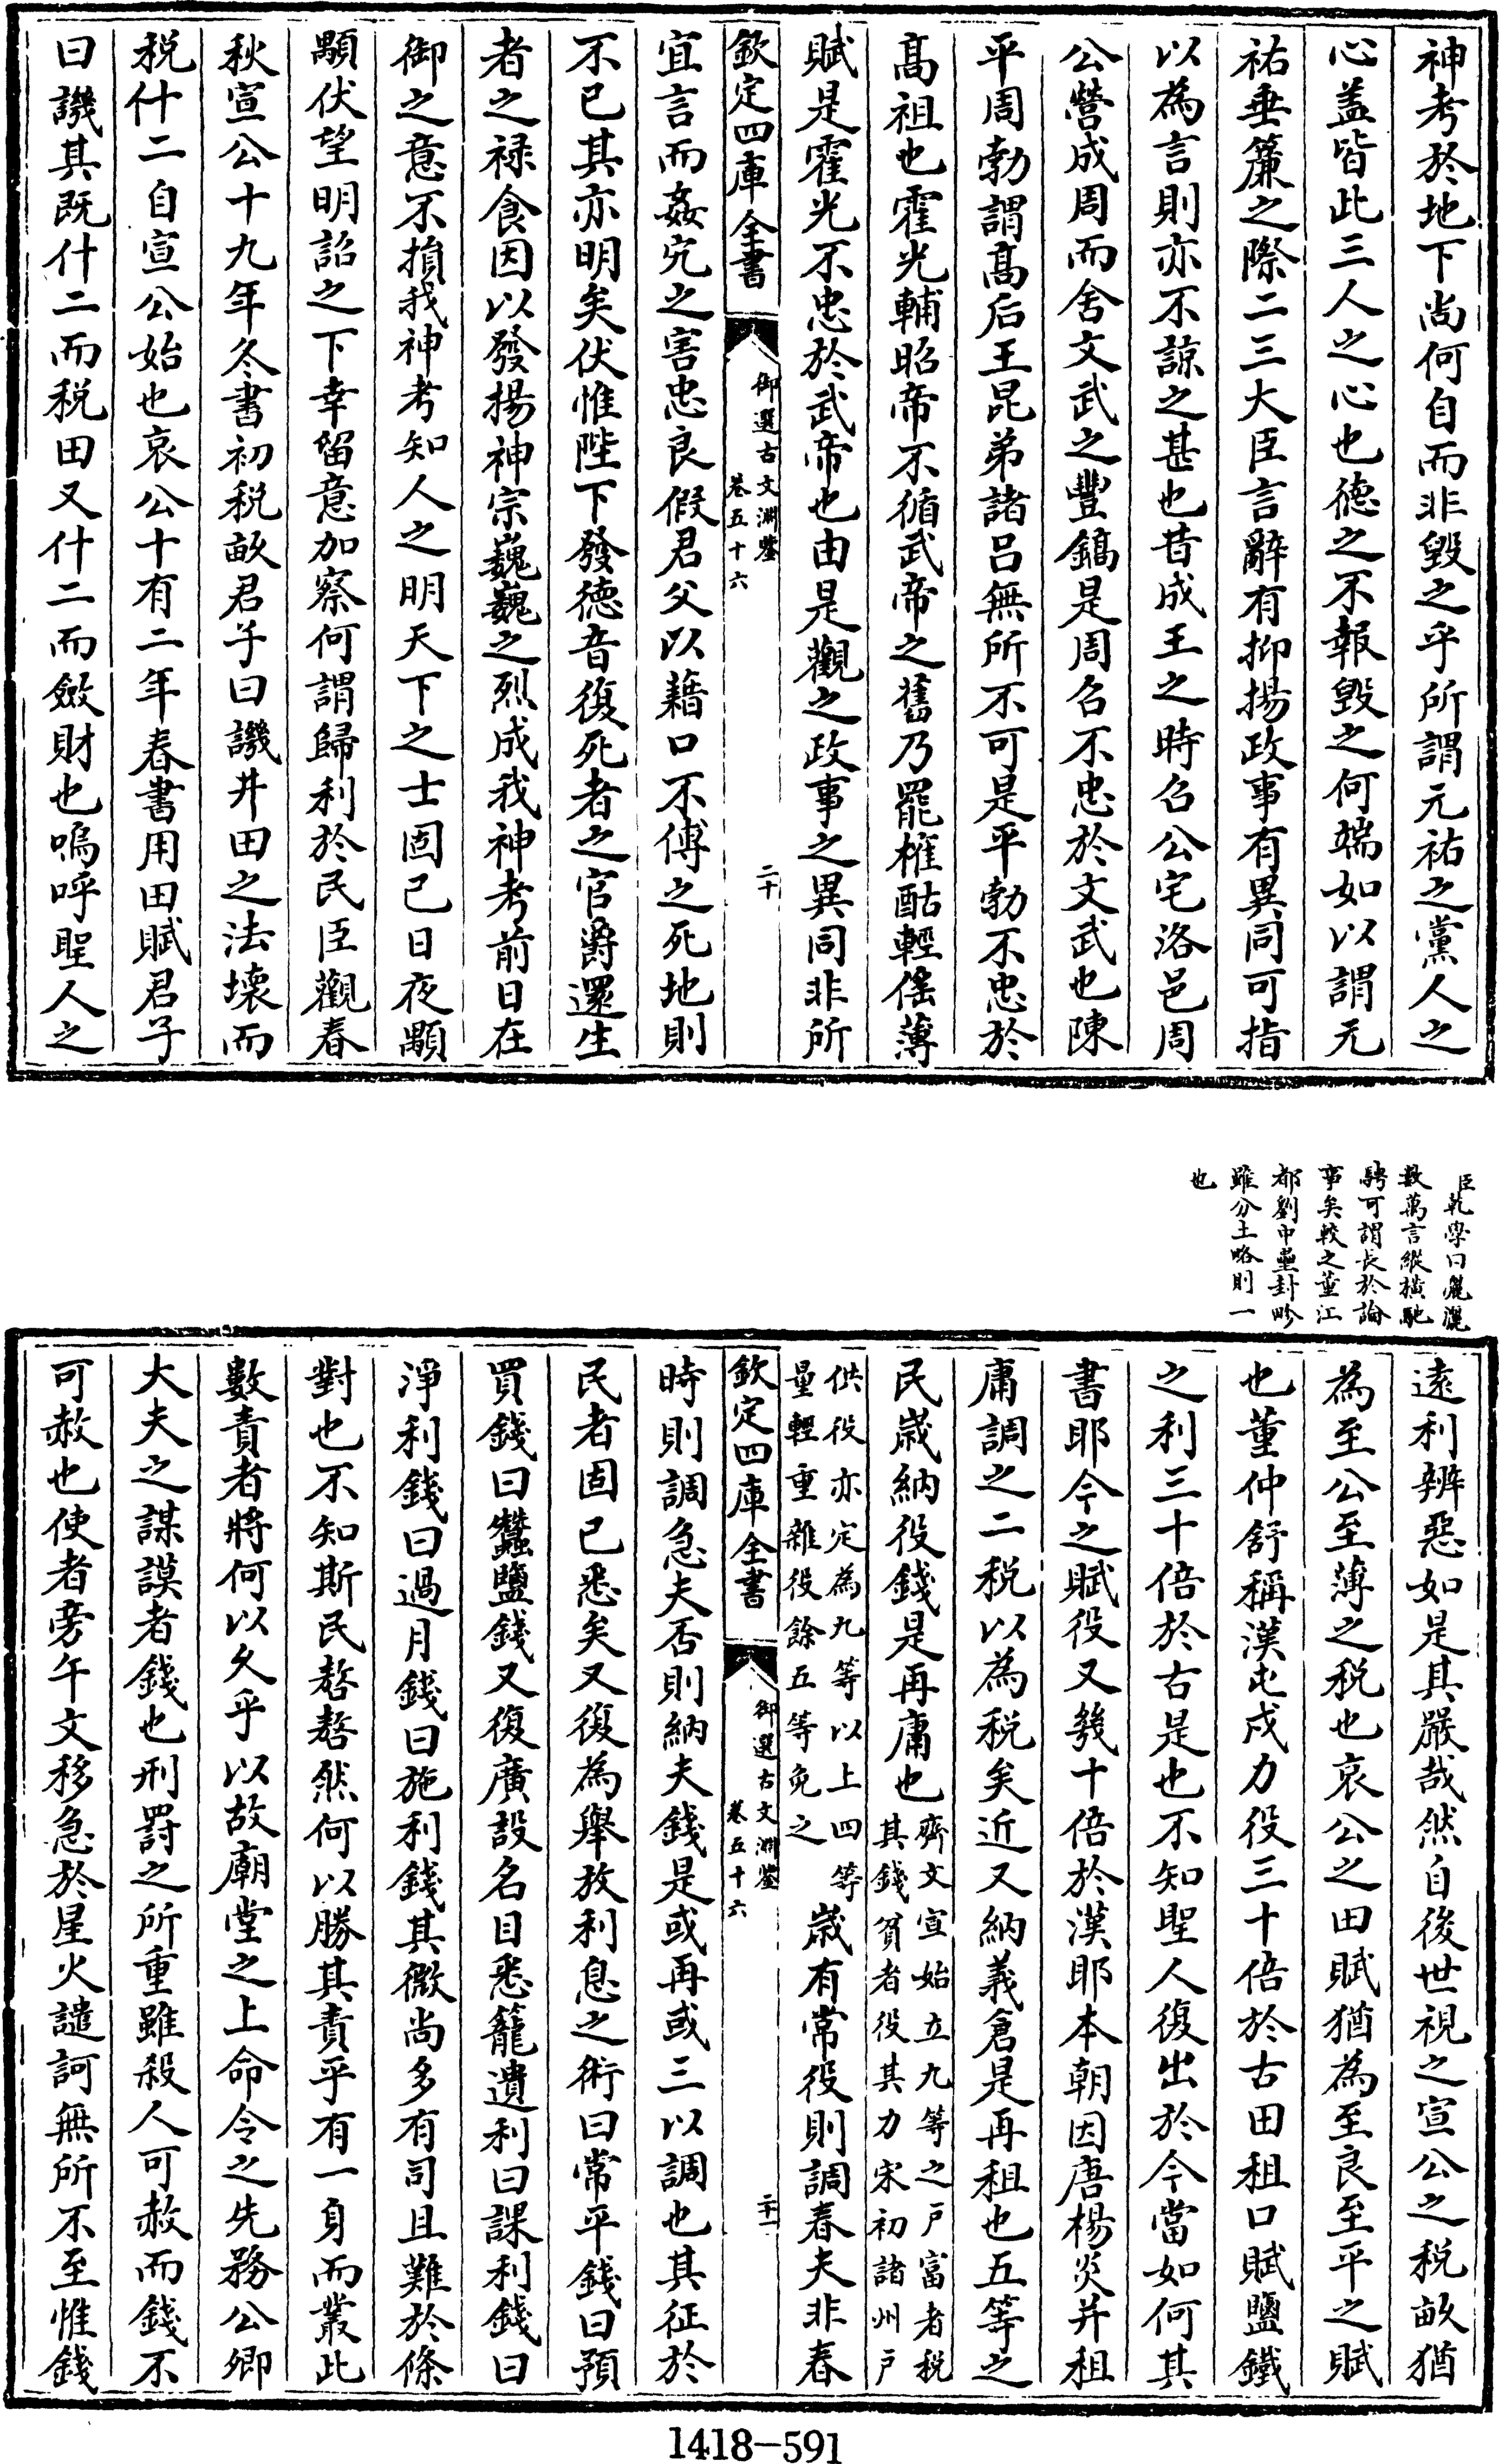 神考於地下尚何自而非毀之乎所謂元祐之黨人之
心蓋皆此三人之心也德之不報毀之何端如以謂元
祐垂簾之際二三大臣言辭有抑揚政事有異同可指
以為言則亦不諒之甚也昔成王之時召公宅洛邑周
公營成周而舍文武之豐鎬是周召不忠於文武也陳
平周勃謂高后王昆弟諸呂無所不可是平勃不忠於
高祖也霍光輔昭帝不循武帝之舊乃罷榷酤輕徭薄
賦是霍光不忠於武帝也由是觀之政事之異同非所
欽定四庫全書
御選古文淵鑒
卷五十六
二十
宜言而姦宄之害忠良假君父以藉口不傅之死地則
不已其亦明矣伏惟陛下發德音復死者之官爵還生
者之祿食因以發揚神宗巍巍之烈成我神考前日在
御之意不損我神考知人之明天下之士固已日夜顒
顒伏望明詔之下幸留意加察何謂歸利於民臣觀春
秋宣公十九年冬書初稅畝君子曰譏井田之法壞而
稅什二自宣公始也哀公十有二年春書用田賦君子
曰譏其既什二而稅田又什二而斂財也嗚呼聖人之
臣乾學曰灑灑
數萬言縱橫馳
騁可謂長於論
事矣較之董江
都劉中壘封畛
雖分土略則一
也
遠利辨惡如是其嚴哉然自後世視之宣公之稅畝猶
為至公至薄之稅也哀公之田賦猶為至良至平之賦
也董仲舒稱漢屯戍力役三十倍於古田租口賦鹽鐵
之利三十倍於古是也不知聖人復出於今當如何其
書耶今之賦役又幾十倍於漢耶本朝因唐楊炎并租
庸調之二稅以為稅矣近又納義倉是再租也五等之
民歲納役錢是再庸也齊文宣始立九等之戶富者稅
其錢貧者役其力宋初諸州戶
供役亦定為九等以上四等
量輕重雜役餘五等免之
歲有常役則調春夫非春
欽定四庫全書
御選古文淵鑒
卷五十六
二十一
時則調急夫否則納夫錢是或再或三以調也其征於
民者固已悉矣又復為舉放利息之術曰常平錢曰預
買錢曰蠶鹽錢又復廣設名目悉籠遺利曰課利錢曰
淨利錢曰過月錢曰施利錢其微尚多有司且難於條
對也不知斯民嗸嗸然何以勝其責乎有一身而叢此
數責者將何以久乎以故廟堂之上命令之先務公卿
大夫之謀謨者錢也刑罰之所重雖殺人可赦而錢不
可赦也使者旁午文移急於星火譴訶無所不至惟錢
1418-591